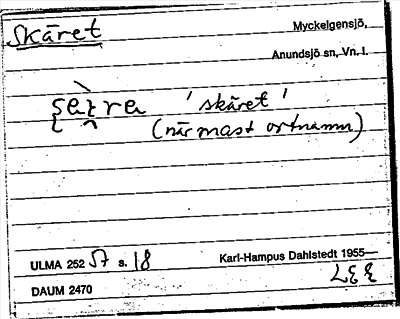 Skäret
Myckelgensjö,
Anundsjö sn, Vn. l.
'skäret'
(närmast ortnamn)
ULMA 252 57 s. 18
Karl-Hampus Dahlstedt 1955—
DAUM 2470